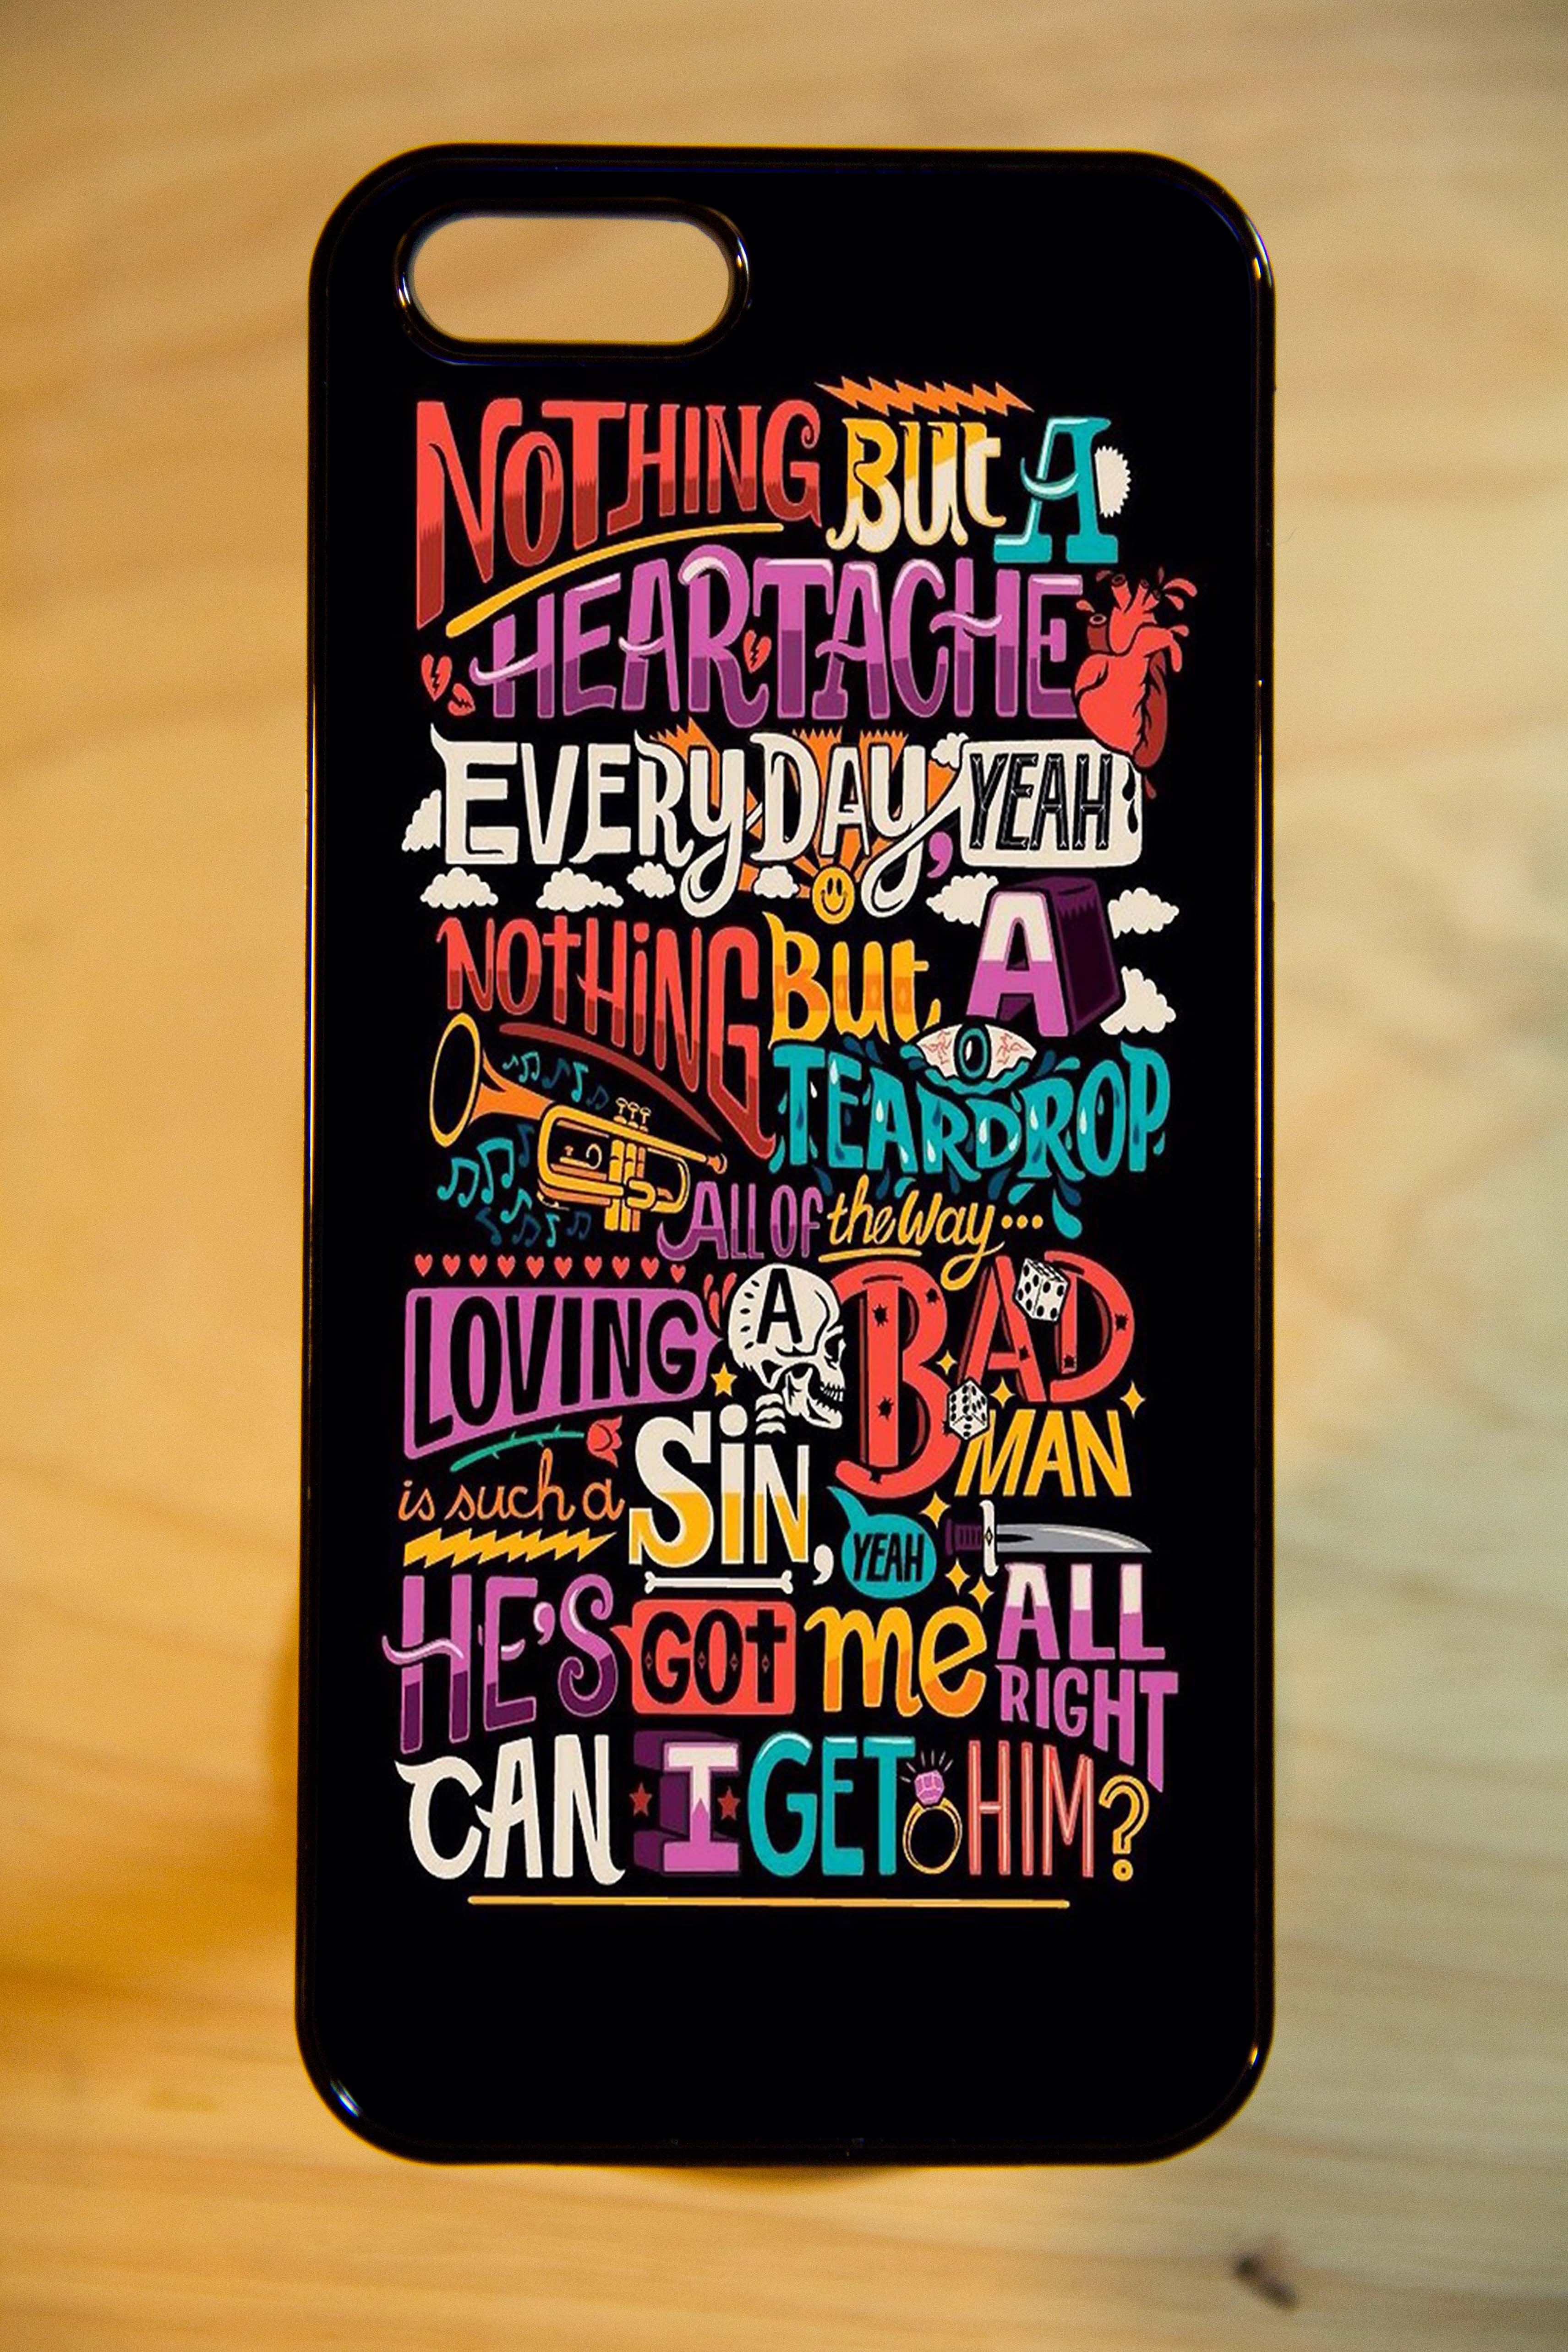 NOTHING BUT A
HEARTACHE
EVERYDAY, YEAH
NOTHING BUT A
TEARDROP
ALL OF the Way...
LOVING A BAD
MAN
is such a SIN, YEAH
HE'S GOT me ALL
RIGHT
CAN I GET HIM?